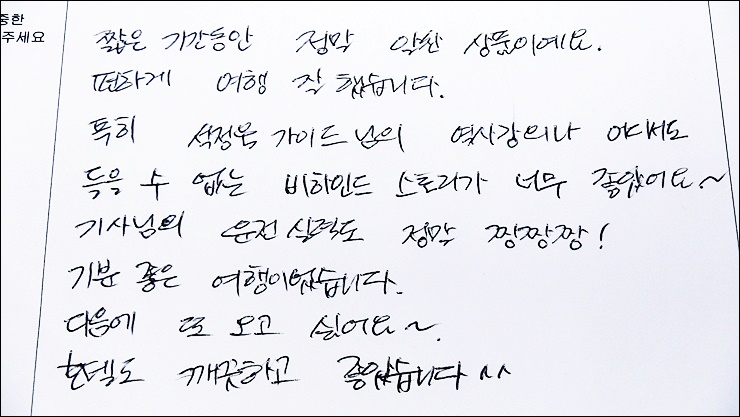 중한
주세요
짧은 기간동안 정말 알찬 상품이예요.
편하게 여행 잘 했습니다.
특히 석정욱 가이드님의 역사강의나 어디서도
들을 수 없는 비하인드 스토리가 너무 좋았어요~
기사님의 운전 실력도 정말 짱짱짱!
기분 좋은 여행이었습니다.
다음에 또 오고 싶어요~.
호텔도 깨끗하고 좋았습니다^^